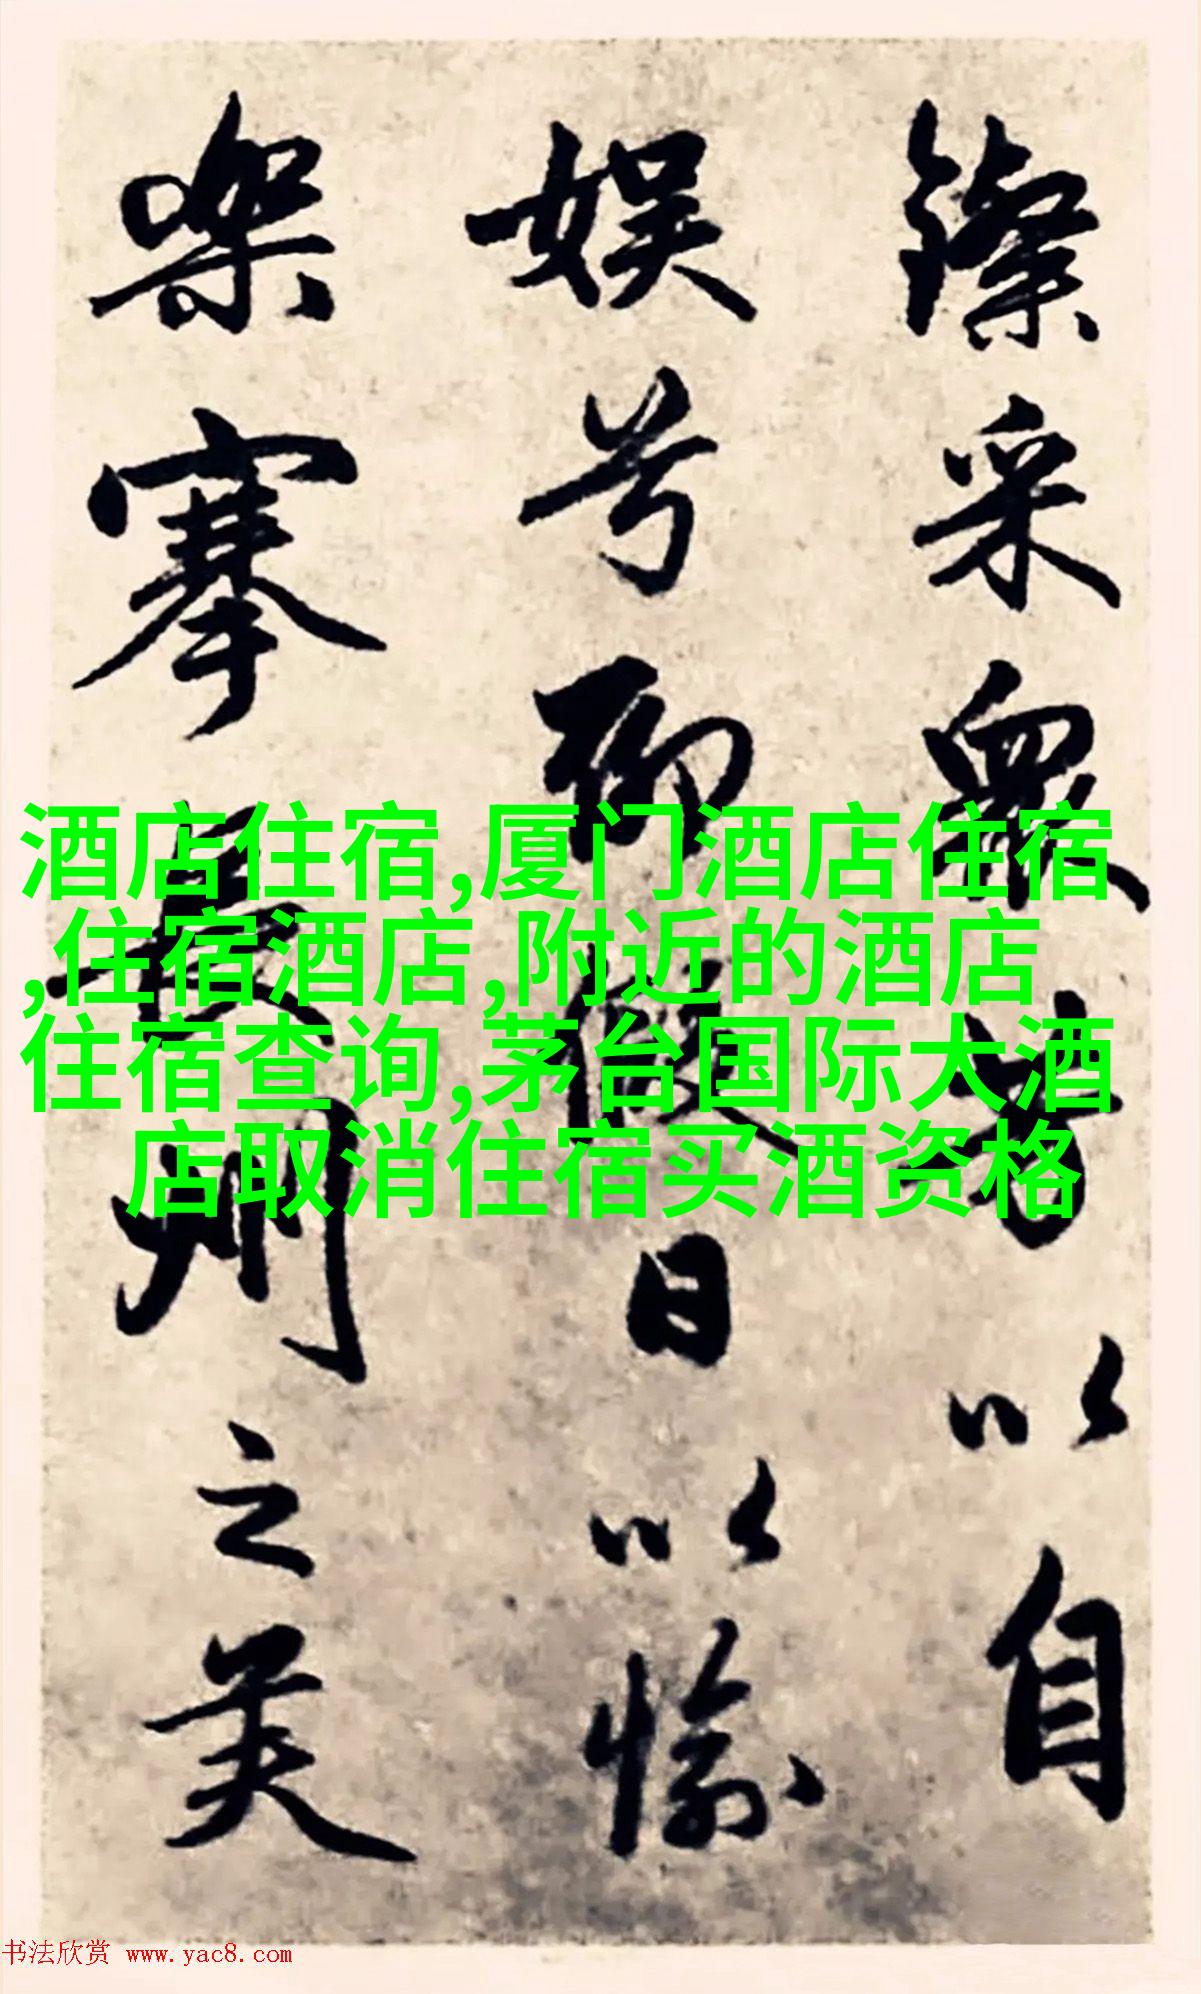 采眾芳以自
娱兮聊假日以愉
樂搴長州之美
酒店住宿,厦门酒店住宿
,住宿酒店,附近的酒店
住宿查询,茅台国际大酒
店取消住宿买酒资格
书法欣赏 www.yac8.com